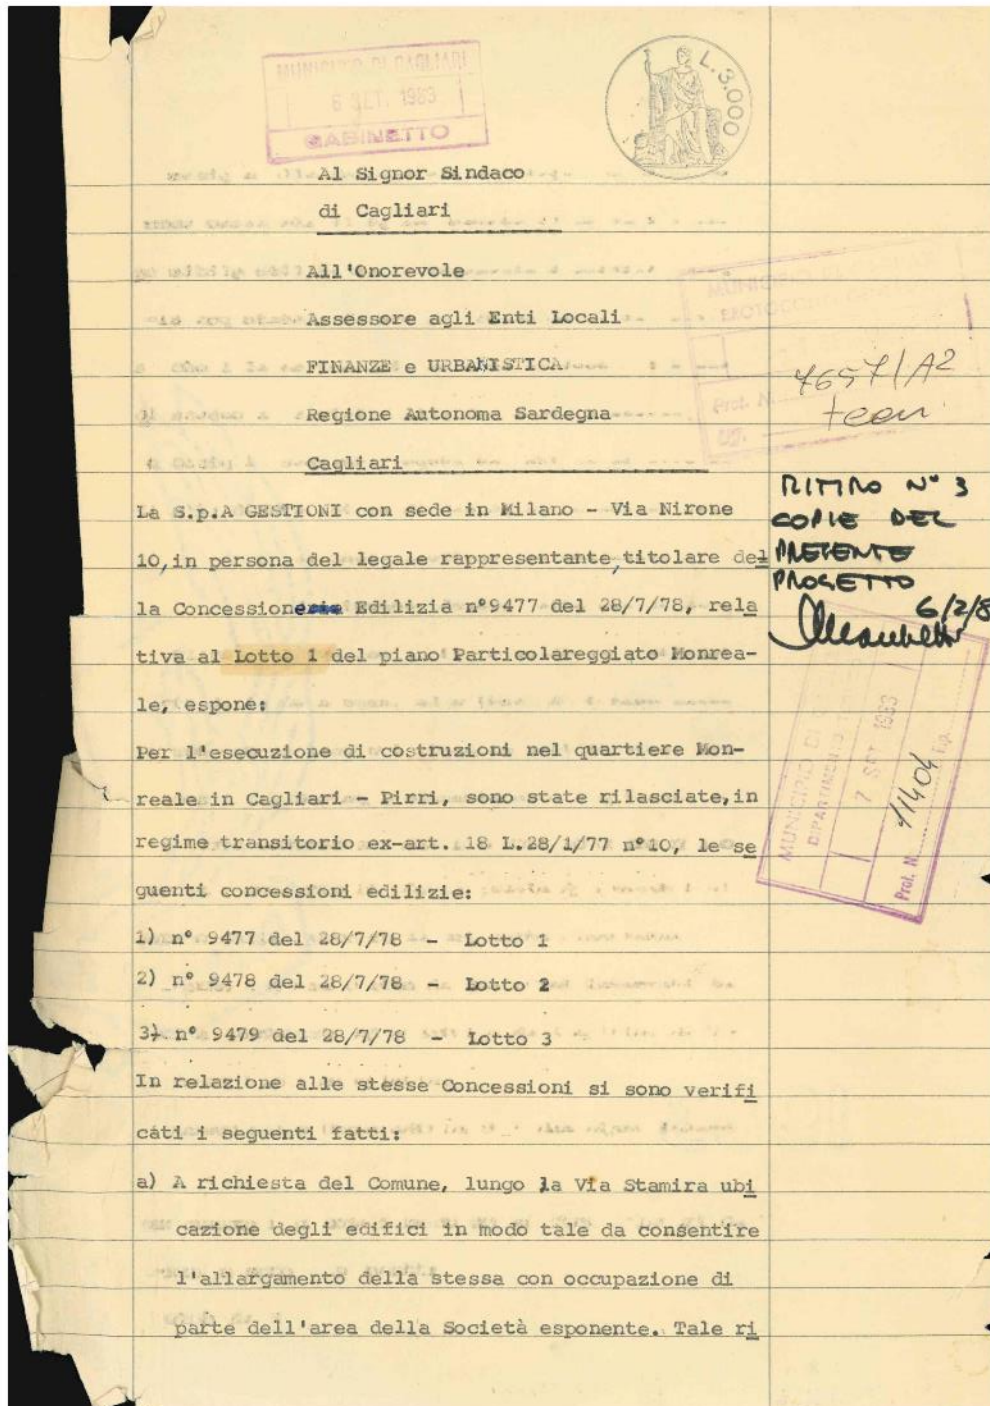 MUNICIPIO DI CAGLIARI
6 SET. 1983
GABINETTO
L.3.000
Al Signor Sindaco
di Cagliari
All'Onorevole
Assessore agli Enti Locali
FINANZE e URBANISTICA
Regione Autonoma Sardegna
Cagliari
MUNICIPIO DI CAGLIARI
Prot. N.
7657/A2
RITIRO N° 3
COPIE DEL
PRESENTE
PROGETTO
6/2/8
La S.p.A GESTIONI con sede in Milano - Via Nirone
10, in persona del legale rappresentante, titolare del
la Concessione Edilizia n°9477 del 28/7/78, rela
tiva al Lotto 1 del piano Particolareggiato Monrea-
le, espone:
Per l'esecuzione di costruzioni nel quartiere Mon-
reale in Cagliari - Pirri, sono state rilasciate, in
regime transitorio ex-art. 18 L.28/1/77 n°10, le se
guenti concessioni edilizie:
1) n° 9477 del 28/7/78 - Lotto 1
2) n° 9478 del 28/7/78 - Lotto 2
3) n° 9479 del 28/7/78 - Lotto 3
In relazione alle stesse Concessioni si sono verifi
cati i seguenti fatti:
a) A richiesta del Comune, lungo la Via Stamira ubi
cazione degli edifici in modo tale da consentire
l'allargamento della stessa con occupazione di
parte dell'area della Società esponente. Tale ri
MUNICIPIO DI
DIPARTIMENTO
7 SET 1983
Prot. N. 11404